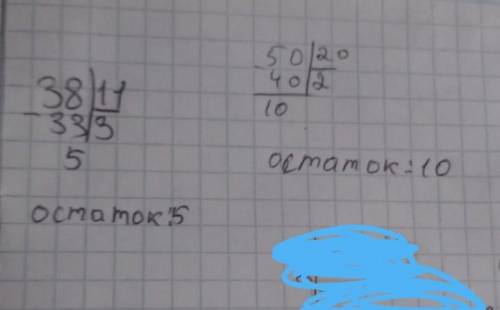 38|11
-33|3
5
остаток:5
-50|20
40|2
10
остаток:10